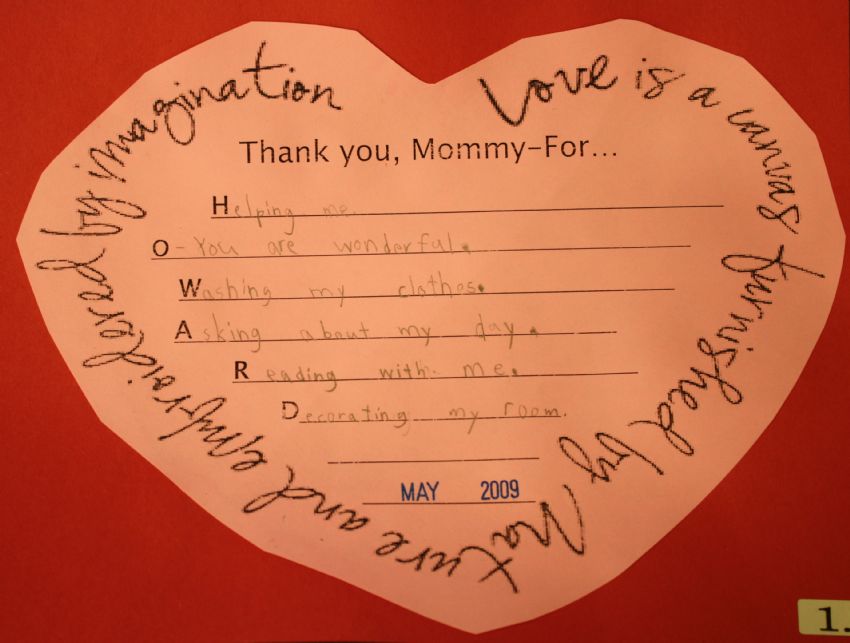 Love is a canvas furnished by Nature and embroidered by imagination
Thank you, Mommy-For...
Helping me.
O-You are wonderful.
Washing my clothes.
Asking about my day.
Reading with me.
Decorating my room.
MAY 2009
1.